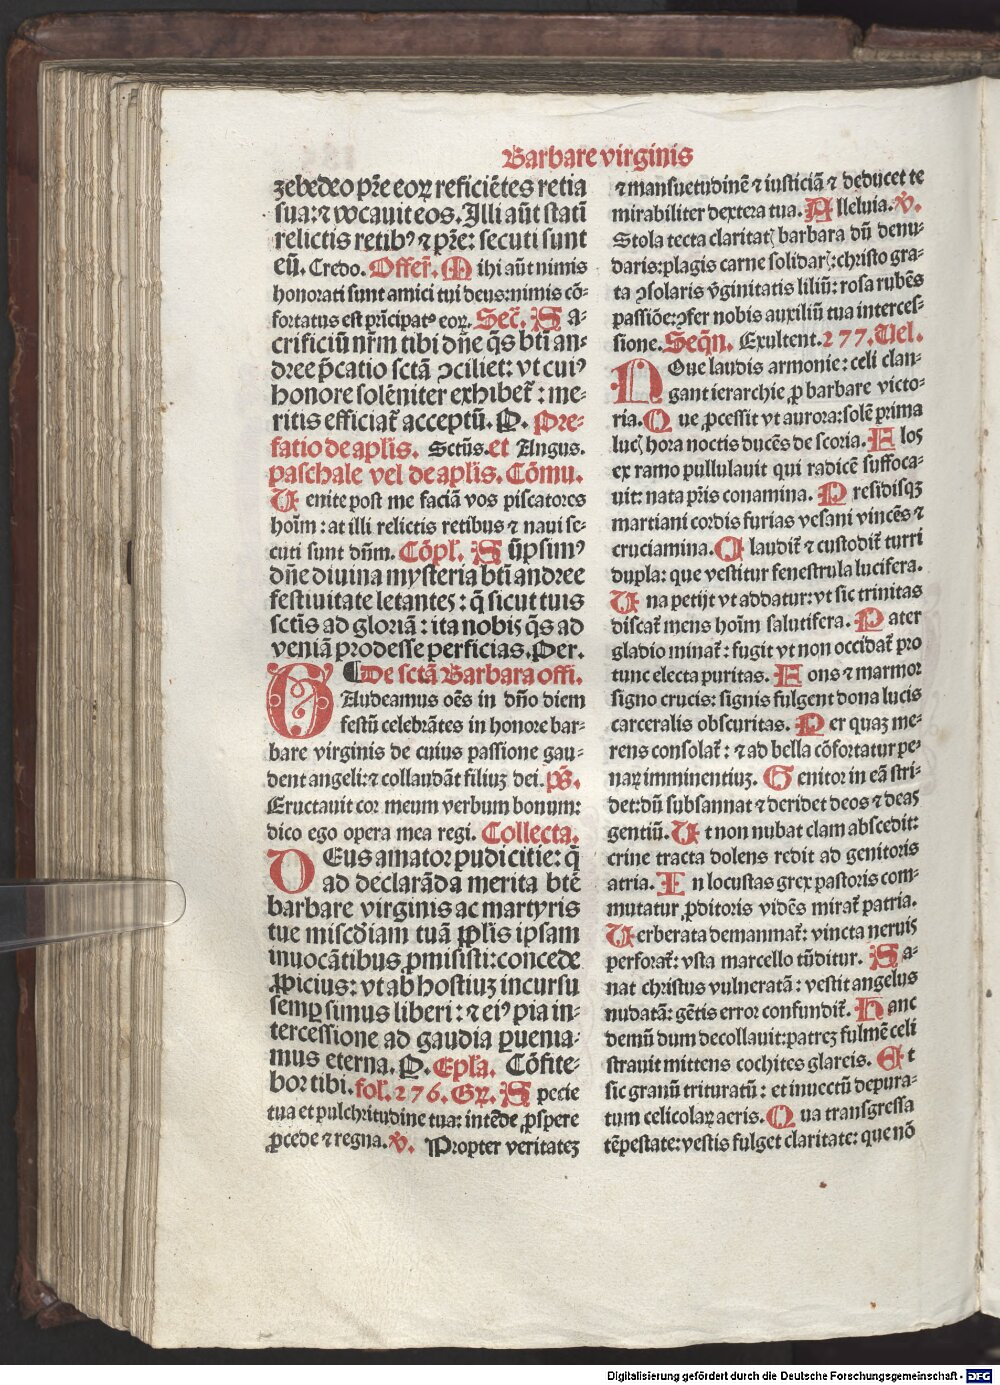 Barbare virginis
zebedeo pr̄e eoꝝ reficiētes retia
sua: ⁊ vocauit eos. Illi aūt statī
relictis retibꝰ ⁊ pr̄e: secuti sunt
eū. Credo. Offer̄. Mihi aūt nimis
honorati sunt amici tui deus: nimis cō-
fortatus est prīcipatꝰ eoꝝ. Sec̄. Sa-
crificiū nr̄m tibi dn̄e q̄s bt̄i an-
dree p̄catio sctā ↄciliet: vt cuiꝰ
honore solēniter exhibet̄: me-
ritis efficiat̄ acceptū. P. Pre-
fatio de aplis. Sctūs. et Angus.
paschale vel de aplis. Cōmu.
Uenite post me faciā vos piscatores
hoīm: at illi relictis retibus ⁊ naui se-
cuti sunt dn̄m. Cōpl̄. Sūpsimꝰ
dn̄e diuina mysteria bt̄i andree
festiuitate letantes: q̄ sicut tuis
sctīs ad gloriā: ita nobis q̄s ad
veniā prodesse perficias. Per.
¶ De sctā Barbara offi.
GAudeamus oēs in dn̄o diem
festū celebrātes in honore bar-
bare virginis de cuius passione gau-
dent angeli: ⁊ collaudāt filiuꝫ dei. ps̄.
Eructauit cor meum verbum bonum:
dico ego opera mea regi. Collecta.
DEus amator pudicitie: q̄
ad declarādā merita bt̄e
barbare virginis ac martyris
tue misc̄diam tuā ꝓplis ipsam
inuocātibus ꝓmisisti: concede
ꝓpicius: vt ab hostiuꝫ incursu
semꝑ simus liberi: ⁊ eiꝰ pia in-
tercessione ad gaudia ꝑuenia-
mus eterna. P. Epl̄a. Cōfite-
bor tibi. fol. 276. Gꝝ. Specie
tua et pulchritudine tua: intēde ꝓspere
ꝓcede ⁊ regna. v̄. Propter veritateꝫ
⁊ mansuetudinē ⁊ iusticiā ⁊ deducet te
mirabiliter dextera tua. Alleluia. v̄.
Stola tecta claritatꝭ barbara dū denu-
daris: plagis carne solidarꝭ: christo gra-
ta ↄsolaris v̄ginitatis liliū: rosa rubēs
passiōe: ↄfer nobis auxiliū tua interces-
sione. Seqn̄. Exultent. 277. Uel.
NOue laudis armonie: celi clan-
gant ierarchie ꝓ barbare victo-
ria. Que ꝓcessit vt aurora: solē prima
lucꝭ hora noctis ducēs de scoria. Flos
ex ramo pullulauit qui radicē suffoca-
uit: nata pr̄is conamina. Presidisqꝫ
martiani cordis furias vesani vincēs ⁊
cruciamina. Claudit̄ ⁊ custodit̄ turri
dupla: que vestitur fenestrula lucifera.
Una petijt vt addatur: vt sic trinitas
discat̄ mens hoīm salutifera. Pater
gladio minat̄: fugit vt non occidat̄ pro
tunc electa puritas. Fons ⁊ marmor
signo crucis: signis fulgent dona lucis
carceralis obscuritas. Per quaꝫ me-
rens consolat̄: ⁊ ad bella cōfortatur pe-
naꝝ imminentiuꝫ. Genitor in eā stri-
det: dū subsannat ⁊ deridet deos ⁊ deas
gentiū. Ut non nubat clam abscedit:
crine tracta dolens redit ad genitoris
atria. In locustas grex pastoris com-
mutatur ꝓditoris vidēs mirat̄ patria.
Uerberata demanmat̄: vincta neruis
perforat̄: vsta marcello tūditur. Sa-
nat christus vulneratā: vestit angelus
nudatā: gētis error confundit̄. Hanc
demū dum decollauit: patreꝫ fulmē celi
strauit mittens cochites glareis. Et
sic granū trituratū: et inuectū depura-
tum celicolaꝝ aeris. Qua transgressa
tēpestate: vestis fulget claritate: que nō
Digitalisierung gefördert durch die Deutsche Forschungsgemeinschaft - DFG